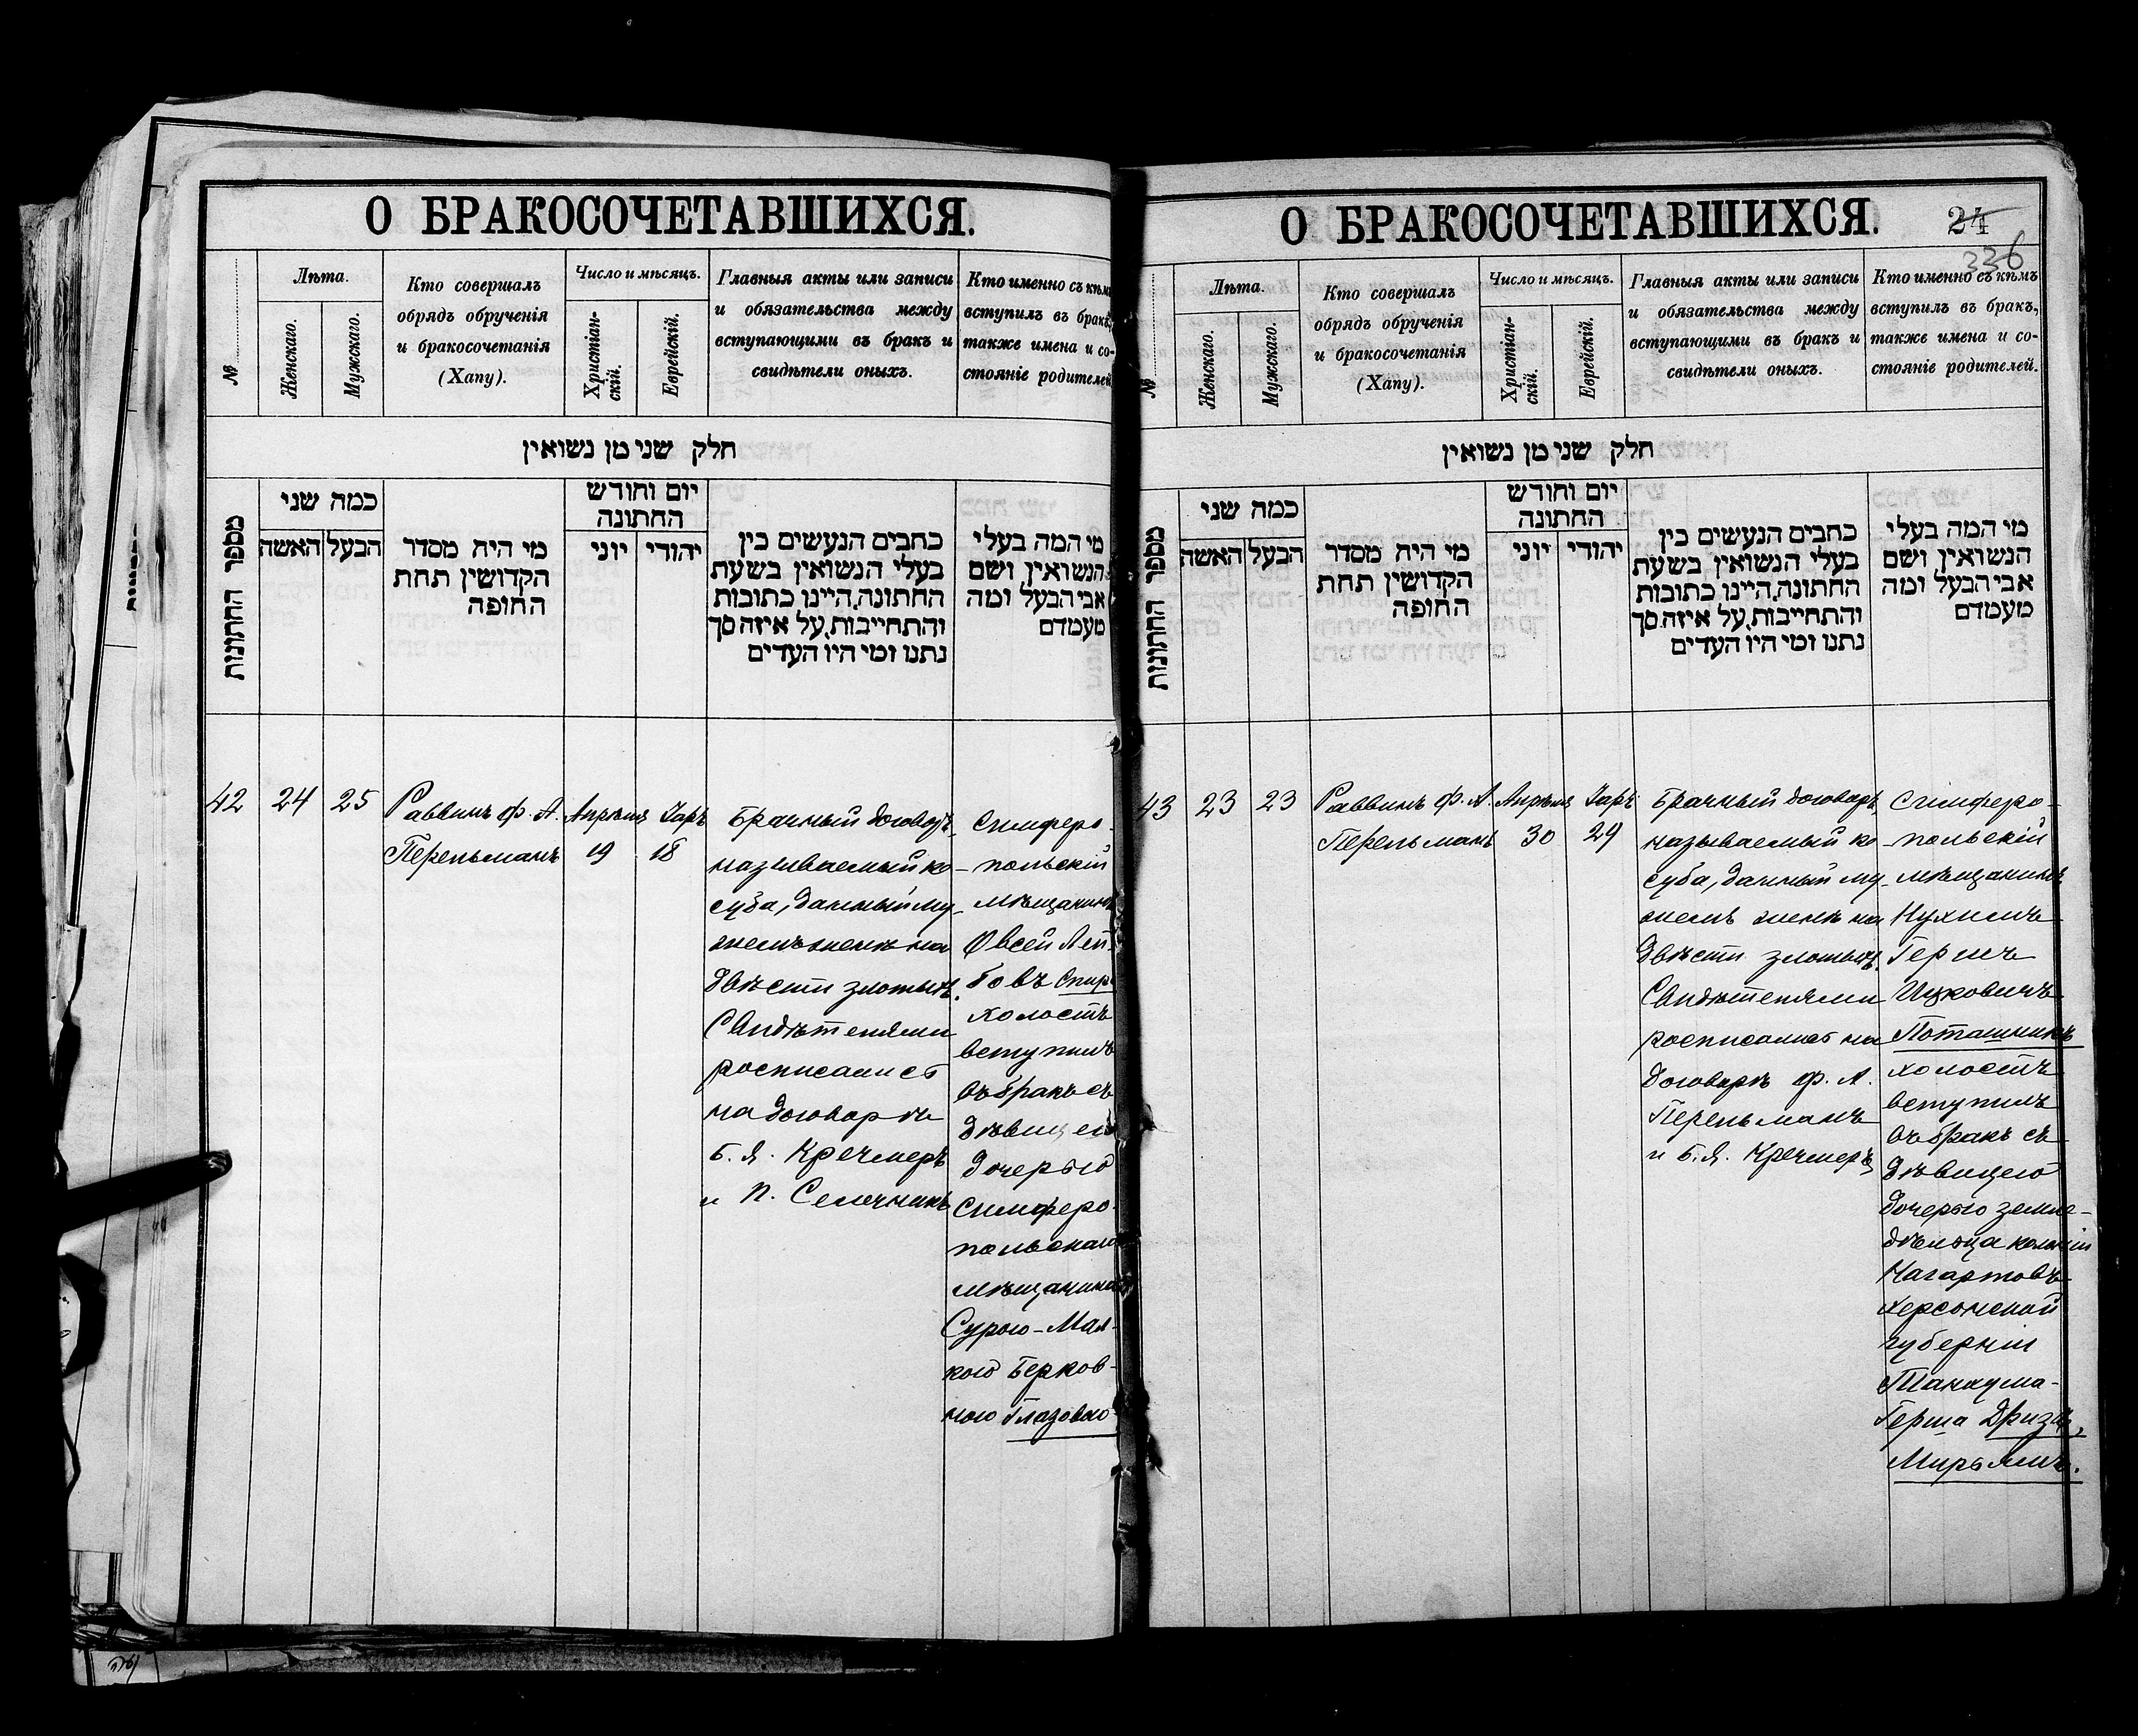 О БРАКОСОЧЕТАВШИХСЯ.
№
Лѣта.
Женскаго.
Мужскаго.
Кто совершалъ
обрядъ обрученія
и бракосочетанія
(Хапу).
Число и мѣсяцъ.
Христіан-
скій.
Еврейскій.
Главныя акты или записи
и обязательства между
вступающими въ бракъ и
свидѣтели оныхъ.
Кто именно съ кѣмъ
вступилъ въ бракъ,
также имена и со-
стояніе родителей
חלק שני מן נשואין
מספר החתונות
כמה שני
הבעל
האשה
מי היה מסדר
הקדושין תחת
החופה
יום וחודש
החתונה
יהודי
יוני
כתבים הנעשים בין
בעלי הנשואין בשעת
החתונה, היינו כתובות
והתחייבות, על איזה סך
נתנו ומי היו העדים
מי המה בעלי
הנשואין, ושם
אבי הבעל ומה
מעמדם
42
24
25
Раввинъ Ф. А.
Перельманъ
Апрѣля
19
Іаръ
18
Брачный договоръ,
называемый ко-
суба, данный му-
жемъ женѣ на
двѣсти злотыхъ.
Свидѣтелями
росписались
на договорѣ
Б. Я. Кречмеръ
и П. Селечникъ
Симферо-
польскій
мѣщанинъ
Овсей Лей-
бовъ Спир
холостъ
вступилъ
въ бракъ съ
дѣвицею
дочерью
Симферо-
польскаго
мѣщанина
Сурою-Мал-
кою Берков-
ною Глазовою
О БРАКОСОЧЕТАВШИХСЯ.
24
336
№
Лѣта.
Женскаго.
Мужскаго.
Кто совершалъ
обрядъ обрученія
и бракосочетанія
(Хапу).
Число и мѣсяцъ.
Христіан-
скій.
Еврейскій.
Главныя акты или записи
и обязательства между
вступающими въ бракъ и
свидѣтели оныхъ.
Кто именно съ кѣмъ
вступилъ въ бракъ,
также имена и со-
стояніе родителей.
חלק שני מן נשואין
מספר החתונות
כמה שני
הבעל
האשה
מי היה מסדר
הקדושין תחת
החופה
יום וחודש
החתונה
יהודי
יוני
כתבים הנעשים בין
בעלי הנשואין בשעת
החתונה, היינו כתובות
והתחייבות, על איזה סך
נתנו ומי היו העדים
מי המה בעלי
הנשואין, ושם
אבי הבעל ומה
מעמדם
43
23
23
Раввинъ Ф. А.
Перельманъ
Апрѣля
30
Іаръ
29
Брачный договоръ,
называемый ко-
суба, данный му-
жемъ женѣ на
двѣсти злотыхъ.
Свидѣтелями
росписались на
договорѣ Ф. А.
Перельманъ
и Б. Я. Кречмеръ
Симферо-
польскій
мѣщанинъ
Нухимъ
Гершъ
Ицковичъ
Поташникъ
холостъ
вступилъ
въ бракъ съ
дѣвицею
дочерью земле-
дѣльца колоніи
Нагартовъ
Херсонской
губерніи
Танхума-
Герша Дризъ,
Мирьямъ.